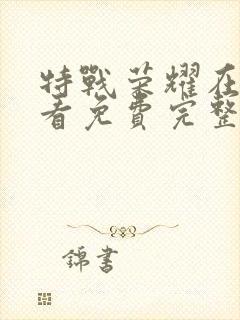 特戰荣耀在
看免費完整
錦書